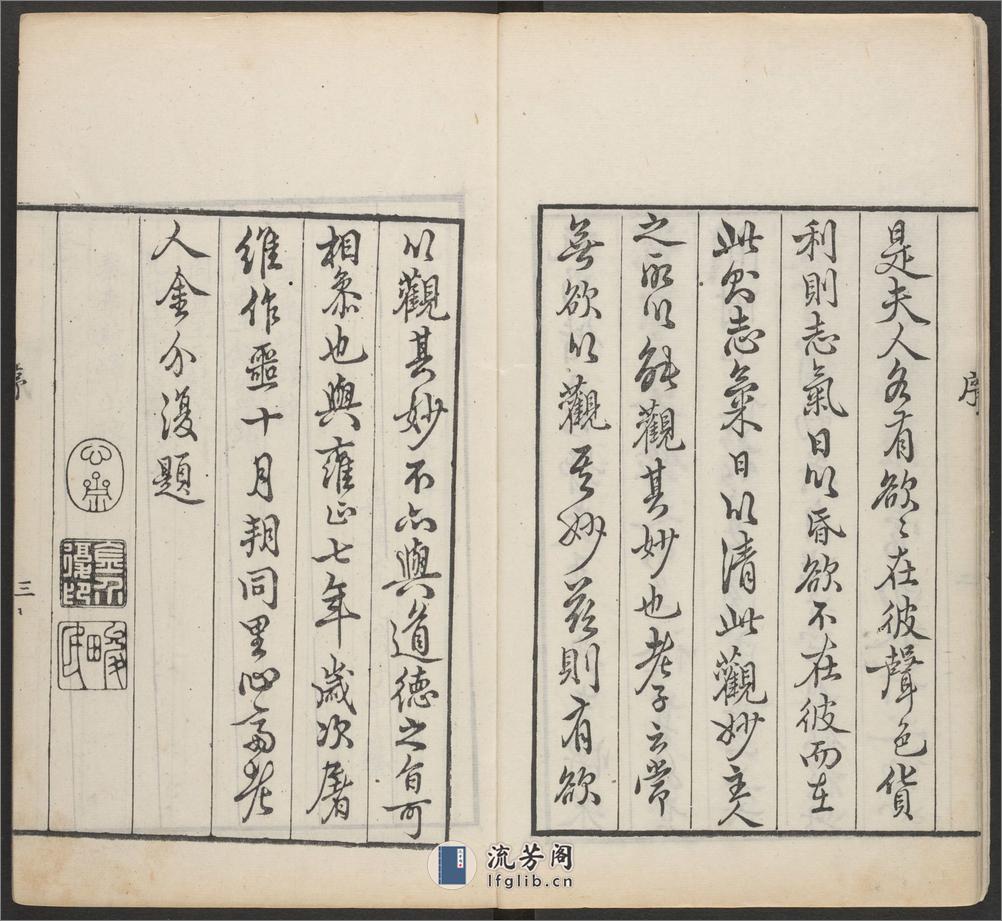 是夫人各有欲〻在彼聲色貨
利則志氣日以昏欲不在彼而在
此則志氣日以清此觀妙主人
之所以能觀其妙也老子云常
無欲以觀其妙茲則有欲
以觀其妙不亦與道德之旨可
相參也與雍正七年歲次屠
維作噩十月朔同里心齋老
人金介復題
序
三
流芳阁
lfglib.cn